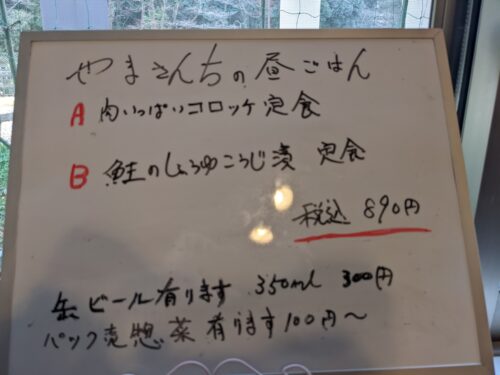 やまさんちの昼ごはん
A 肉いっぱいコロッケ定食
B 鮭のしょうゆこうじ漬 定食
税込 890円
缶ビール有ります 350ml 300円
パック売惣菜有ります100円～